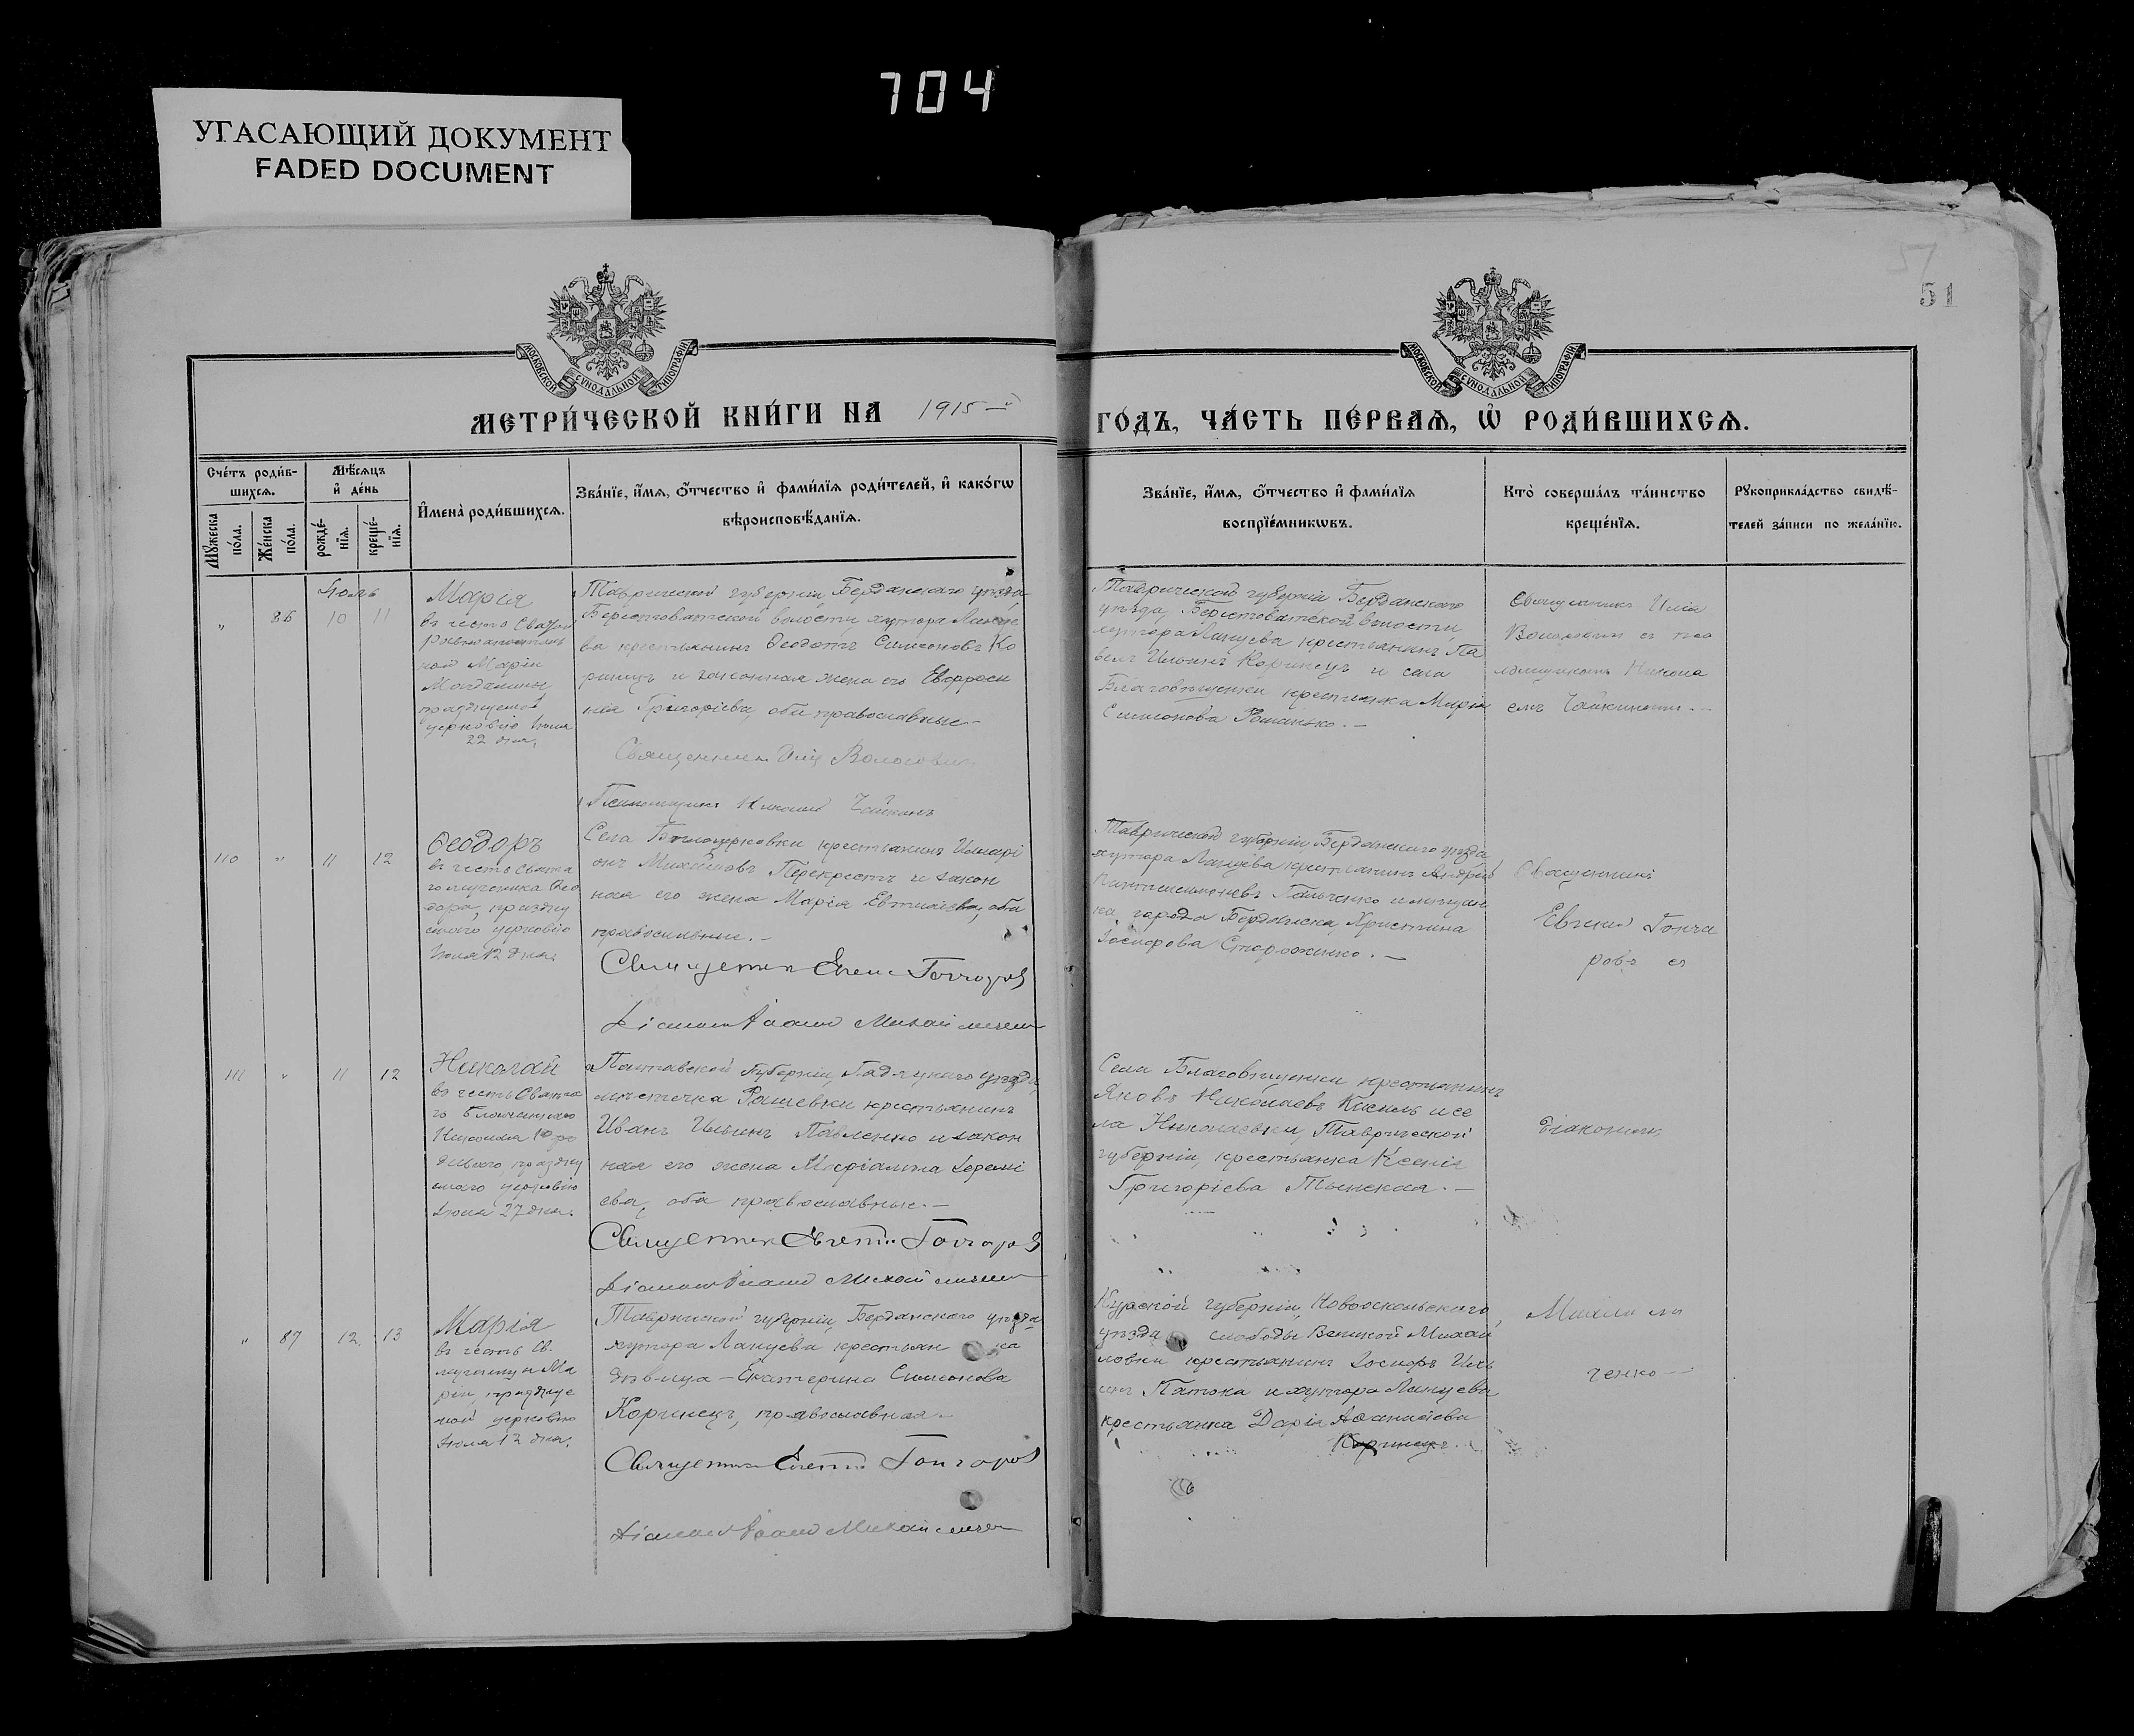 704
УГАСАЮЩИЙ ДОКУМЕНТ
FADED DOCUMENT
51
МОСКОВСКОЙ СѴНОДАЛЬНОЙ ТИПОГРАФІИ
МОСКОВСКОЙ СѴНОДАЛЬНОЙ ТИПОГРАФІИ
МЕТРИ́ЧЕСКОЙ КНИ́ГИ НА 1915-й
ГО́ДЪ, ЧА́СТЬ ПЕ́РВАѦ, Ѡ҆ РОДИ́ВШИХСѦ.
Сче́тъ роди́в-
шихсѧ.
Мꙋ́жеска
по́ла.
Же́нска
по́ла.
Мѣ́сѧцъ
и҆ де́нь
рожде́-
нїѧ.
креще́-
нїѧ.
И҆мена̀ роди́вшихсѧ.
Зва́нїе, и҆́мѧ, ѻ҆́тчество и҆ фами́лїѧ роди́телей, и҆ како́гѡ
вѣроисповѣ́данїѧ.
Зва́нїе, и҆́мѧ, ѻ҆́тчество и҆ фами́лїѧ
воспрїе́мникѡвъ.
Кто̀ соверша́лъ та́инство
креще́нїѧ.
Рꙋкоприкла́дство свидѣ́-
телей за́писи по жела́нїю.
Іюль
" 86 10 11
Марія
въ честь Святой
равноапостоль
ной Маріи
Магдалины
празднуемой
церковію Іюля
22 дня.
Таврической губерніи, Бердянскаго уѣзда,
Берестоватской волости хутора Ланце
ва крестьянинъ Ѳеодотъ Симоновъ Ко
ринецъ и законная жена его Евфроси
нія Григоріева, оба православные.-
Священникъ Илія Волосович
Псаломщикъ Николай Чайкинъ
Таврической губерніи Бердянскаго
уѣзда, Берестоватской волости,
хутора Ланцева крестьянинъ Па
велъ Ильинъ Коринецъ и села
Благовѣщенки крестьянка Марія
Симонова Романько.-
Священникъ Илія
съ пса
ломщикомъ Никола
емъ Чайкинымъ.-
110 " 11 12
Ѳеодоръ
въ честь Свята
го мученика Ѳео
дора, праздну
емаго церковію
Іюля 12 дня.
Села Бѣлоцерковки крестьянинъ Иларі
онъ Михайловъ Перекрестъ и закон
ная его жена Марія Евтихіева, оба
православные.-
Священникъ Евгеній Гончаровъ
Діаконъ Іоаннъ Михайличенко
Таврической губерніи Бердянскаго уѣзда
хутора Ланцева крестьянинъ Андрей
Гальченко и мѣщан
ка города Бердянска Христина
Іосифова Стороженко.-
Священникъ
Евгеній Гонча
ровъ съ
111 " 11 12
Николай
въ честь Свята
го Блаженнаго
Николая Ново
праздну
емаго церковію
Іюля 27 дня.
Полтавской Губерніи, Гадячскаго уѣзда,
мѣстечка Рашевки крестьянинъ
Иванъ Ильинъ Павленко и закон
ная его жена Маріамна Іеремі
ева, оба православные.-
Священникъ Евгеній Гончаровъ
Діаконъ Іоаннъ Михайличенко
Села Благовѣщенки крестьянинъ
Яковъ Николаевъ Кисиль и се
ла Николаевки, Таврической
губерніи, крестьянка Ксенія
Григоріева Тынская.-
Діакономъ
" 87 12 13
Марія
въ честь св.
мученицы Ма
ріи, праздуе
мой церковію
Іюля 12 дня.
Таврической губерніи, Бердянскаго уѣзда
хутора Ланцева крестьянка
дѣвица - Екатерина Симонова
Коринецъ, православная.-
Священникъ Евгеній Гончаровъ
Діаконъ Іоаннъ Михайличенко
Курской губерніи, Новооскольскаго,
уѣзда слободы Великой Михай
ловки крестьянинъ Іосифъ Иль
инъ Пятока и хутора Ланцева
крестьянка Дарія Аѳанасіева
Коринецъ.
Михайли
ченко-